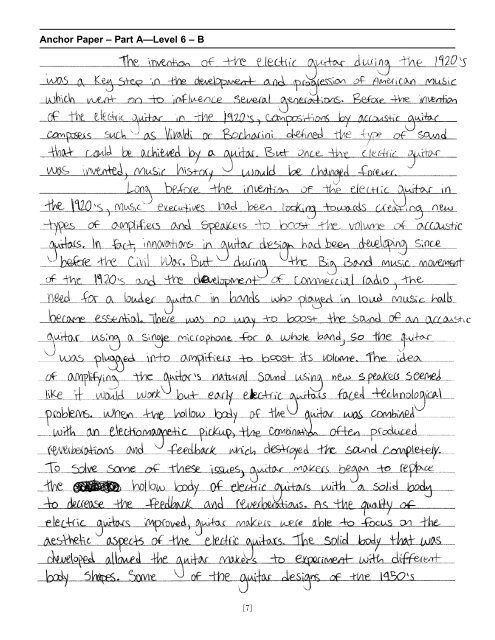 Anchor Paper – Part A—Level 6 – B
The invention of the electric guitar during the 1920's
was a key step in the development and progression of American music
which went on to influence several generations. Before the invention
of the electric guitar in the 1920's, compositions by accoustic guitar
composers such as Vivaldi or Bocharini defined the type of sound
that could be achieved by a guitar. But once the electric guitar
was invented, music history would be changed forever.
Long before the invention of the electric guitar in
the 1920's, music executives had been looking towards creating new
types of amplifiers and speakers to boost the volume of accoustic
guitars. In fact, innovations in guitar design had been developing since
before the Civil War. But during the Big Band music movement
of the 1920's and the development of commercial radio, the
need for a louder guitar in bands who played in loud music halls
became essential. There was no way to boost the sound of an accoustic
guitar using a single microphone for a whole band, so the guitar
was plugged into amplifiers to boost its volume. The idea
of amplifying the guitar's natural sound using new speakers seemed
like it would work but early electric guitars faced technological
problems. When the hollow body of the guitar was combined
with an electromagnetic pickup, the combination often produced
reverberations and feedback which destroyed the sound completely.
To solve some of these issues, guitar makers began to replace
the hollow body of electric guitars with a solid body
to decrease the feedback and reverberations. As the quality of
electric guitars improved, guitar makers were able to focus on the
aesthetic aspects of the electric guitars. The solid body that was
developed allowed the guitar makers to experiment with different
body shapes. Some of the guitar designs of the 1950's
[7]